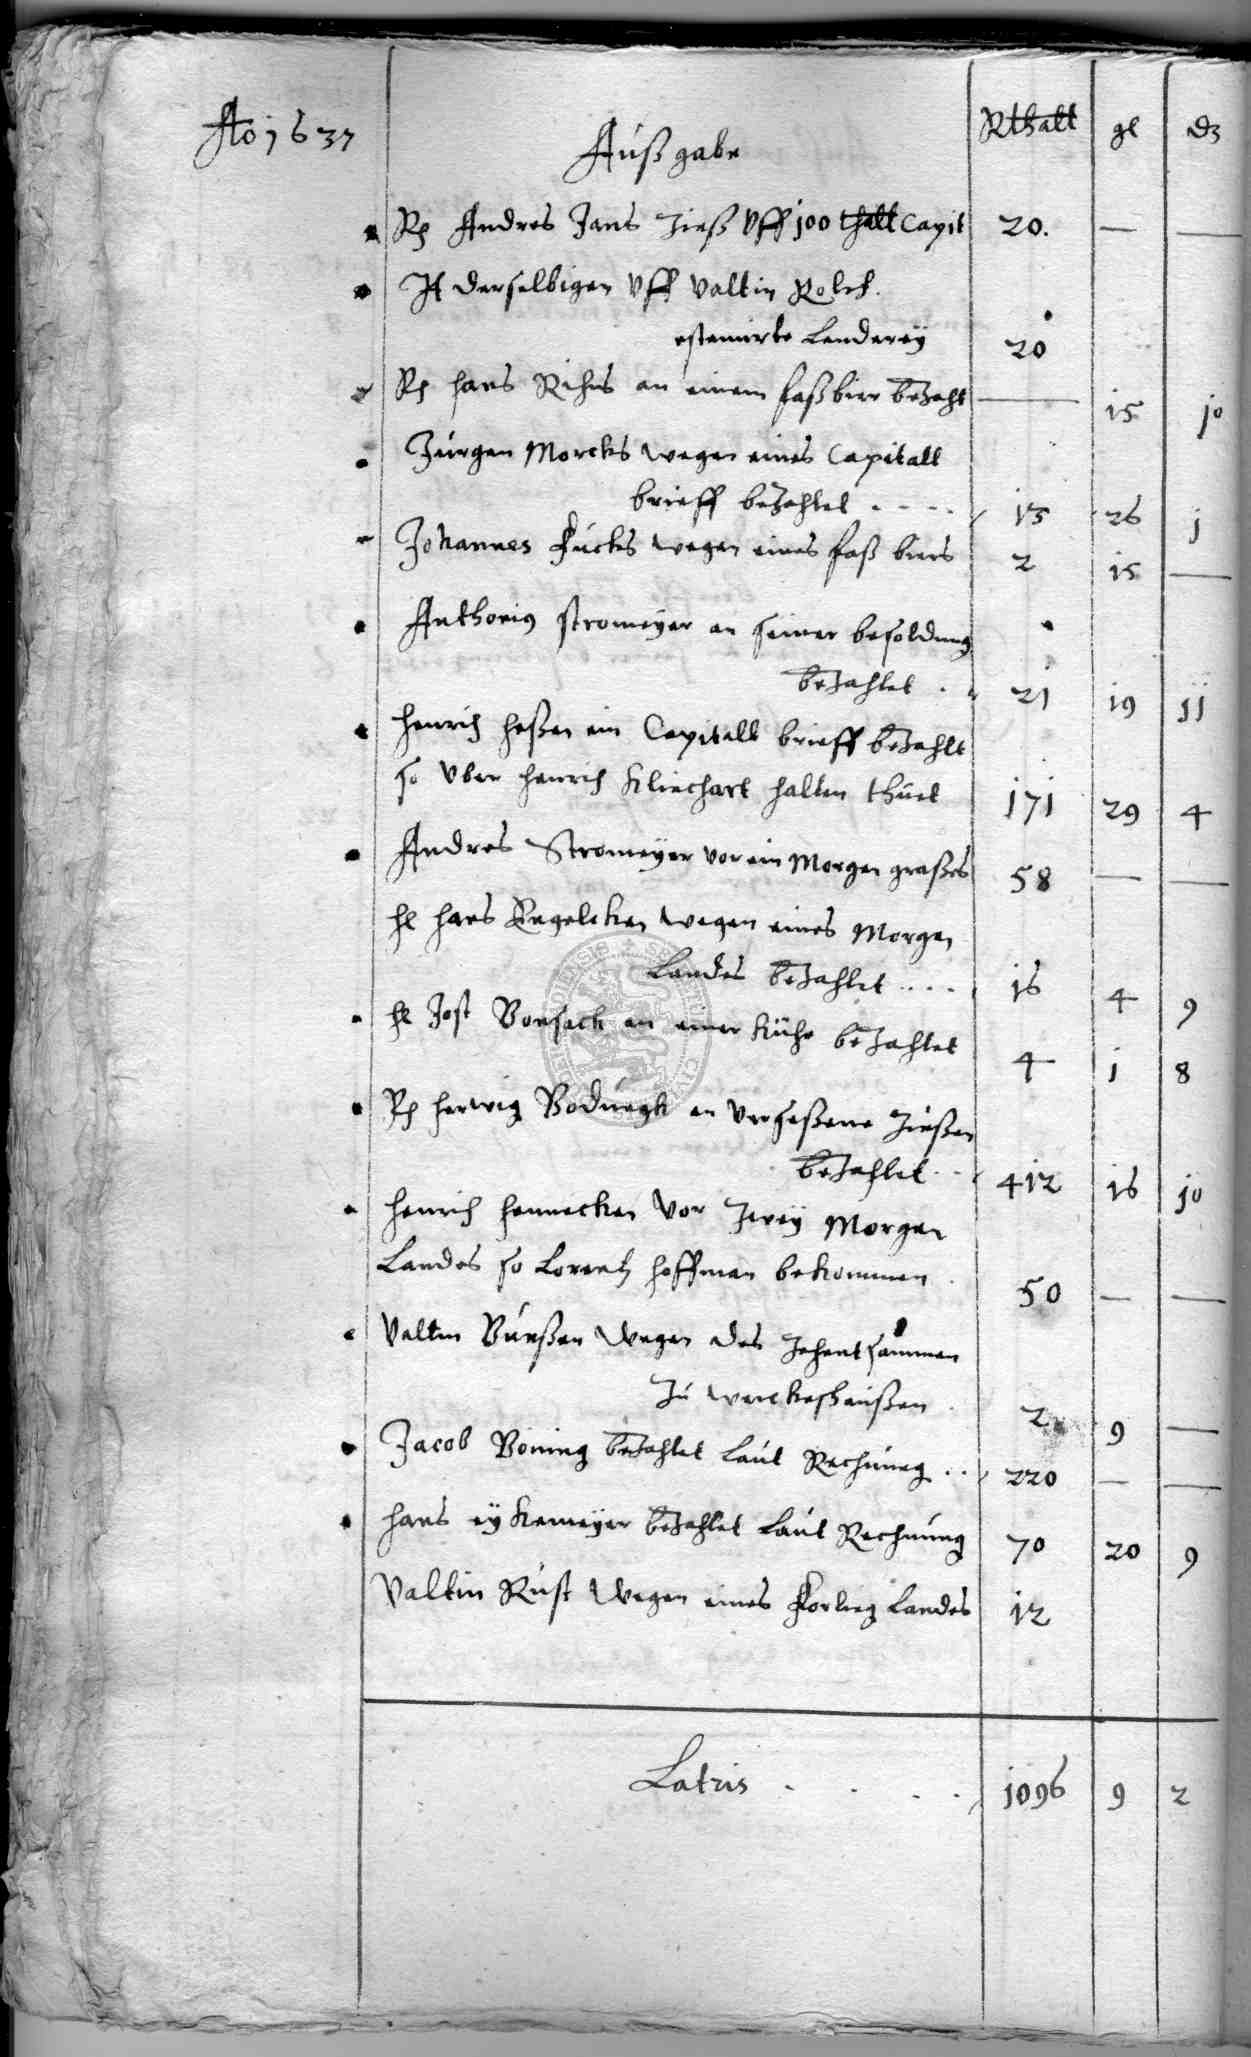 Ao 1637
Außgabe
Rthall gl d3
Rh Andres Jans Zinß Uff 100 thall Capit 20. — —
It derselbigen Uff Valtin Rolefs
estemirte Lenderey 20
Rh Hans Rihus an einem faß bier bezahlt — 15 10
Jürgen Morcks wegen eines Capitall
brieff bezahlet . . . . 15 26 1
Johannes Fücks wegen eines faß biers 2 15 —
Anthonius Stromeyer an seiner besoldung
bezahlet . . 21 19 11
Henrich Heßen ein Capitall brieff bezahlt
so Uber Henrich Kliechart halten thuet 171 29 4
Andres Stromeyer vor ein Morgen graßes 58 — —
H Hans Engelcken wegen eines Morgen
Landes bezahlet . . . . 16 4 9
H Jost Bonsack an einer Kühe bezahlet 4 1 8
Rh Herwig Boduegk an versessene Zinßen
bezahlet . . 412 16 10
Henrich Hennecken vor Zwey Morgen
Landes so Lorentz Hoffman bekommen . 50 — —
Valtin Bürßen wegen des Zehent sammen
Zu Werckeshaußen . 2 9 —
Jacob Böning bezahlet Laut Rechnung . . 220 — —
Hans Eykemeyer bezahlet Laut Rechnung 70 20 9
Valtin Rust wegen eines Forling Landes 12
Latris . . . . 1096 9 2